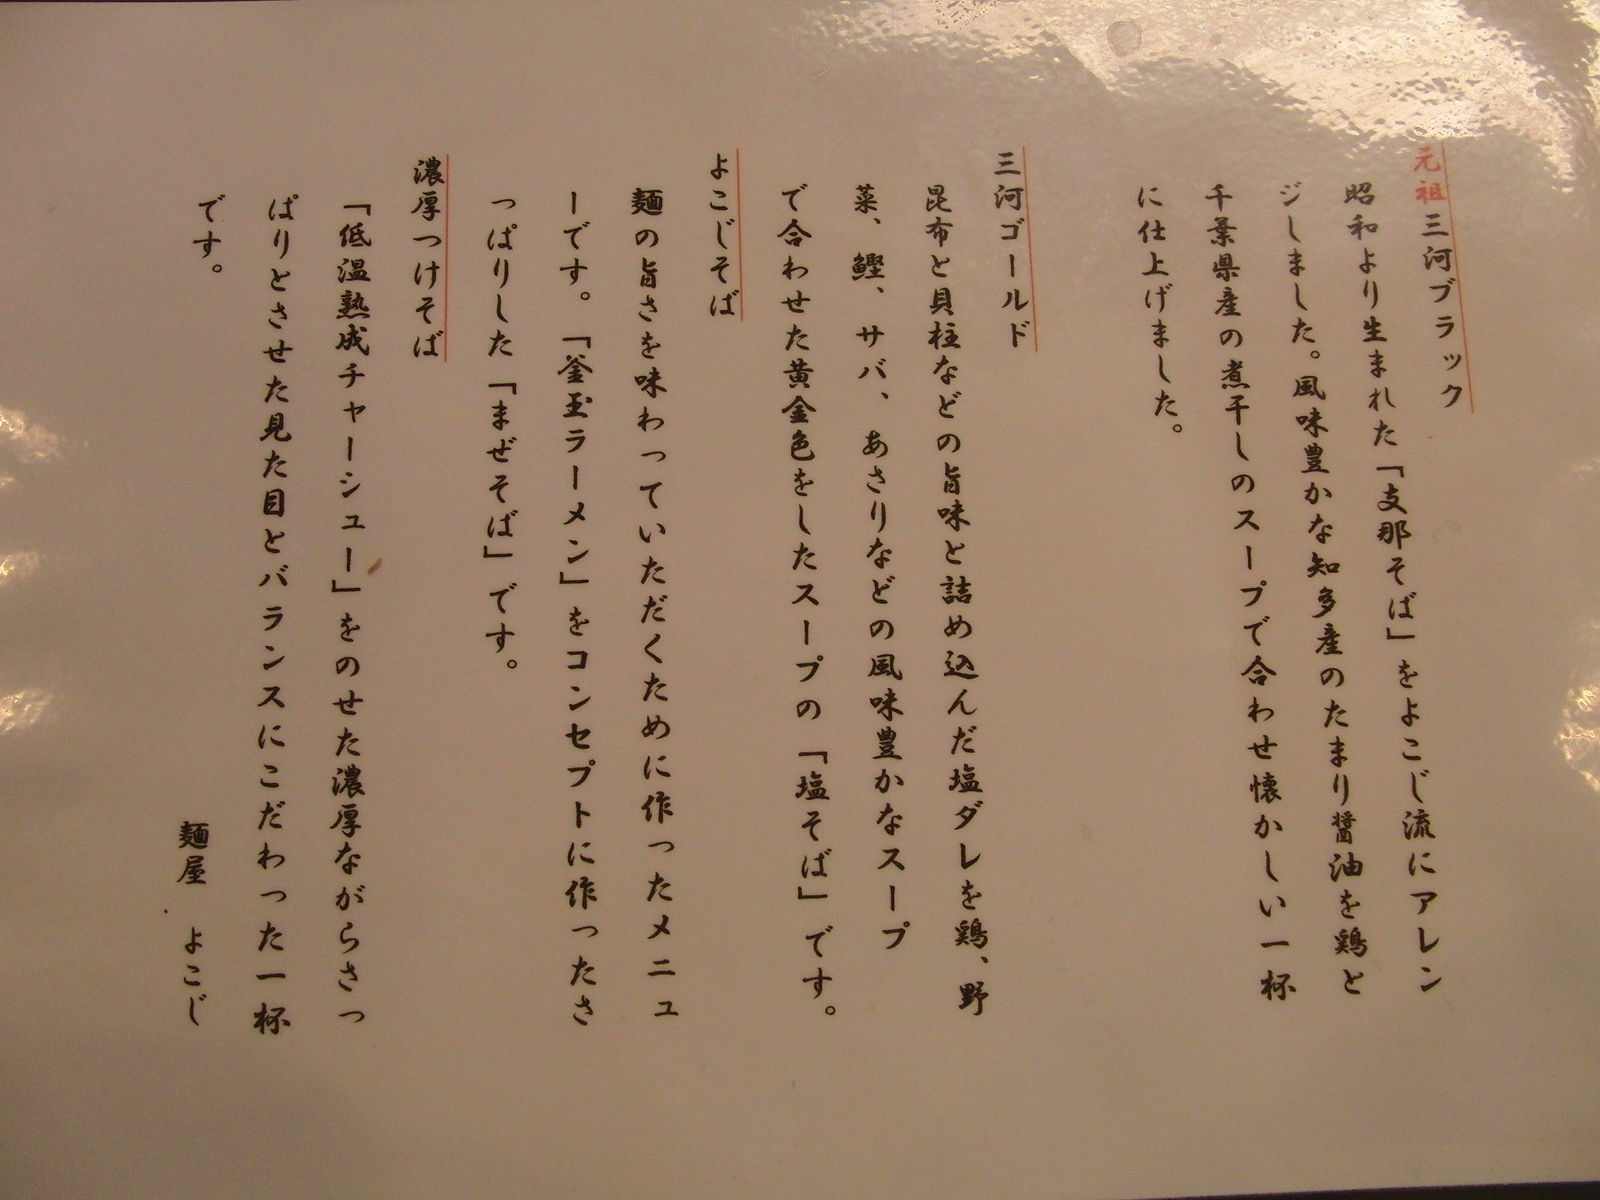 元祖三河ブラック
昭和より生まれた「支那そば」をよこじ流にアレン
ジしました。風味豊かな知多産のたまり醤油を鶏と
千葉県産の煮干しのスープで合わせ懐かしい一杯
に仕上げました。
三河ゴールド
昆布と貝柱などの旨味と詰め込んだ塩ダレを鶏、野
菜、鰹、サバ、あさりなどの風味豊かなスープ
で合わせた黄金色をしたスープの「塩そば」です。
よこじそば
麺の旨さを味わっていただくために作ったメニュ
ーです。「釜玉ラーメン」をコンセプトに作ったさ
っぱりした「まぜそば」です。
濃厚つけそば
「低温熟成チャーシュー」をのせた濃厚ながらさっ
ぱりとさせた見た目とバランスにこだわった一杯
です。
麺屋 よこじ